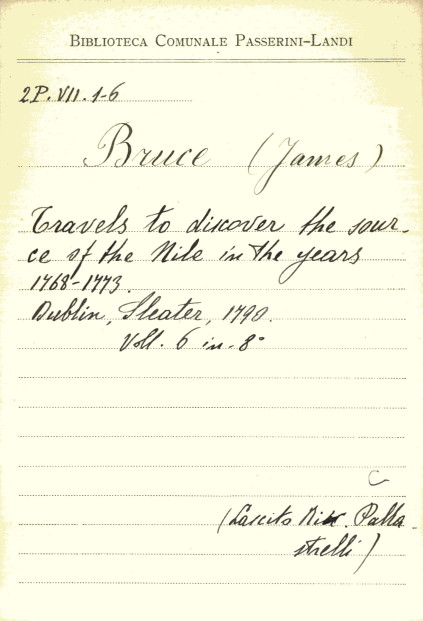 BIBLIOTECA COMUNALE PASSERINI-LANDI
2P.VII.1-6
Bruce (James)
Travels to discover the sour-
ce of the Nile in the years
1768-1773.
Dublin, Sleater, 1790.
Voll. 6 in-8°
C
(Lascito Palla-
strelli)